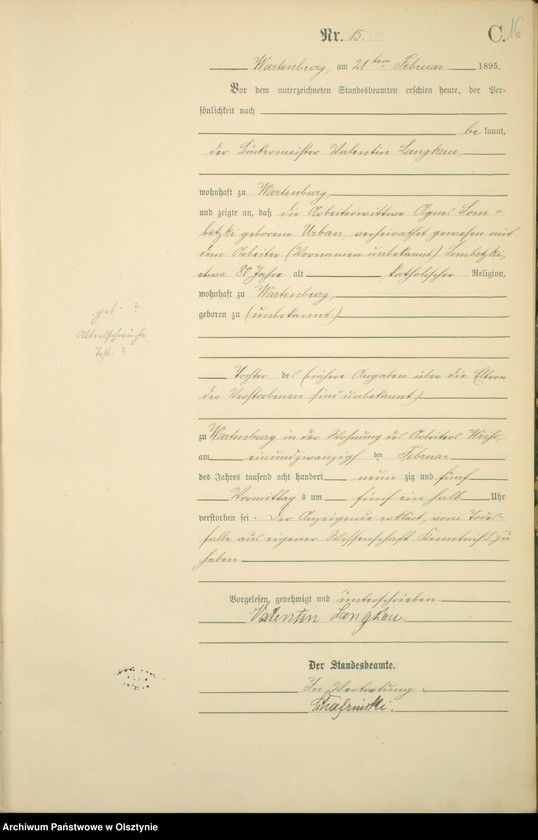 Nr. 15.
C.
16
Wartenburg, am 21ten Februar 1895.
Vor dem unterzeichneten Standesbeamten erschien heute, der Per-
sönlichkeit nach
bekannt,
der Bäckermeister Valentin Langkau,
wohnhaft zu Wartenburg,
und zeigte an, daß die Arbeiterwittwe Agnes Lom-
betzki geborene Urban, verheirathet gewesen mit
dem Arbeiter (Vornamen unbekannt) Lombetzki,
etwa 80 Jahre alt, katholischer Religion,
wohnhaft zu Wartenburg,
geboren zu (unbekannt)
geb: ?
Altersschwäche
?
Tochter des (nähere Angaben über die Eltern
der Verstorbenen sind unbekannt)
zu Wartenburg in der Wohnung des Arbeiters
am einundzwanzigsten Februar
des Jahres tausend acht hundert neun zig und fünf
Vormittags um fünf ein halb Uhr
verstorben sei. Der Anzeigende erklärt, vom Todes-
falle aus eigener Wissenschaft Kenntniß zu
haben.
Vorgelesen, genehmigt und unterschrieben
Valentin Langkau.
Der Standesbeamte.
In Vertretung.
Archiwum Państwowe w Olsztynie